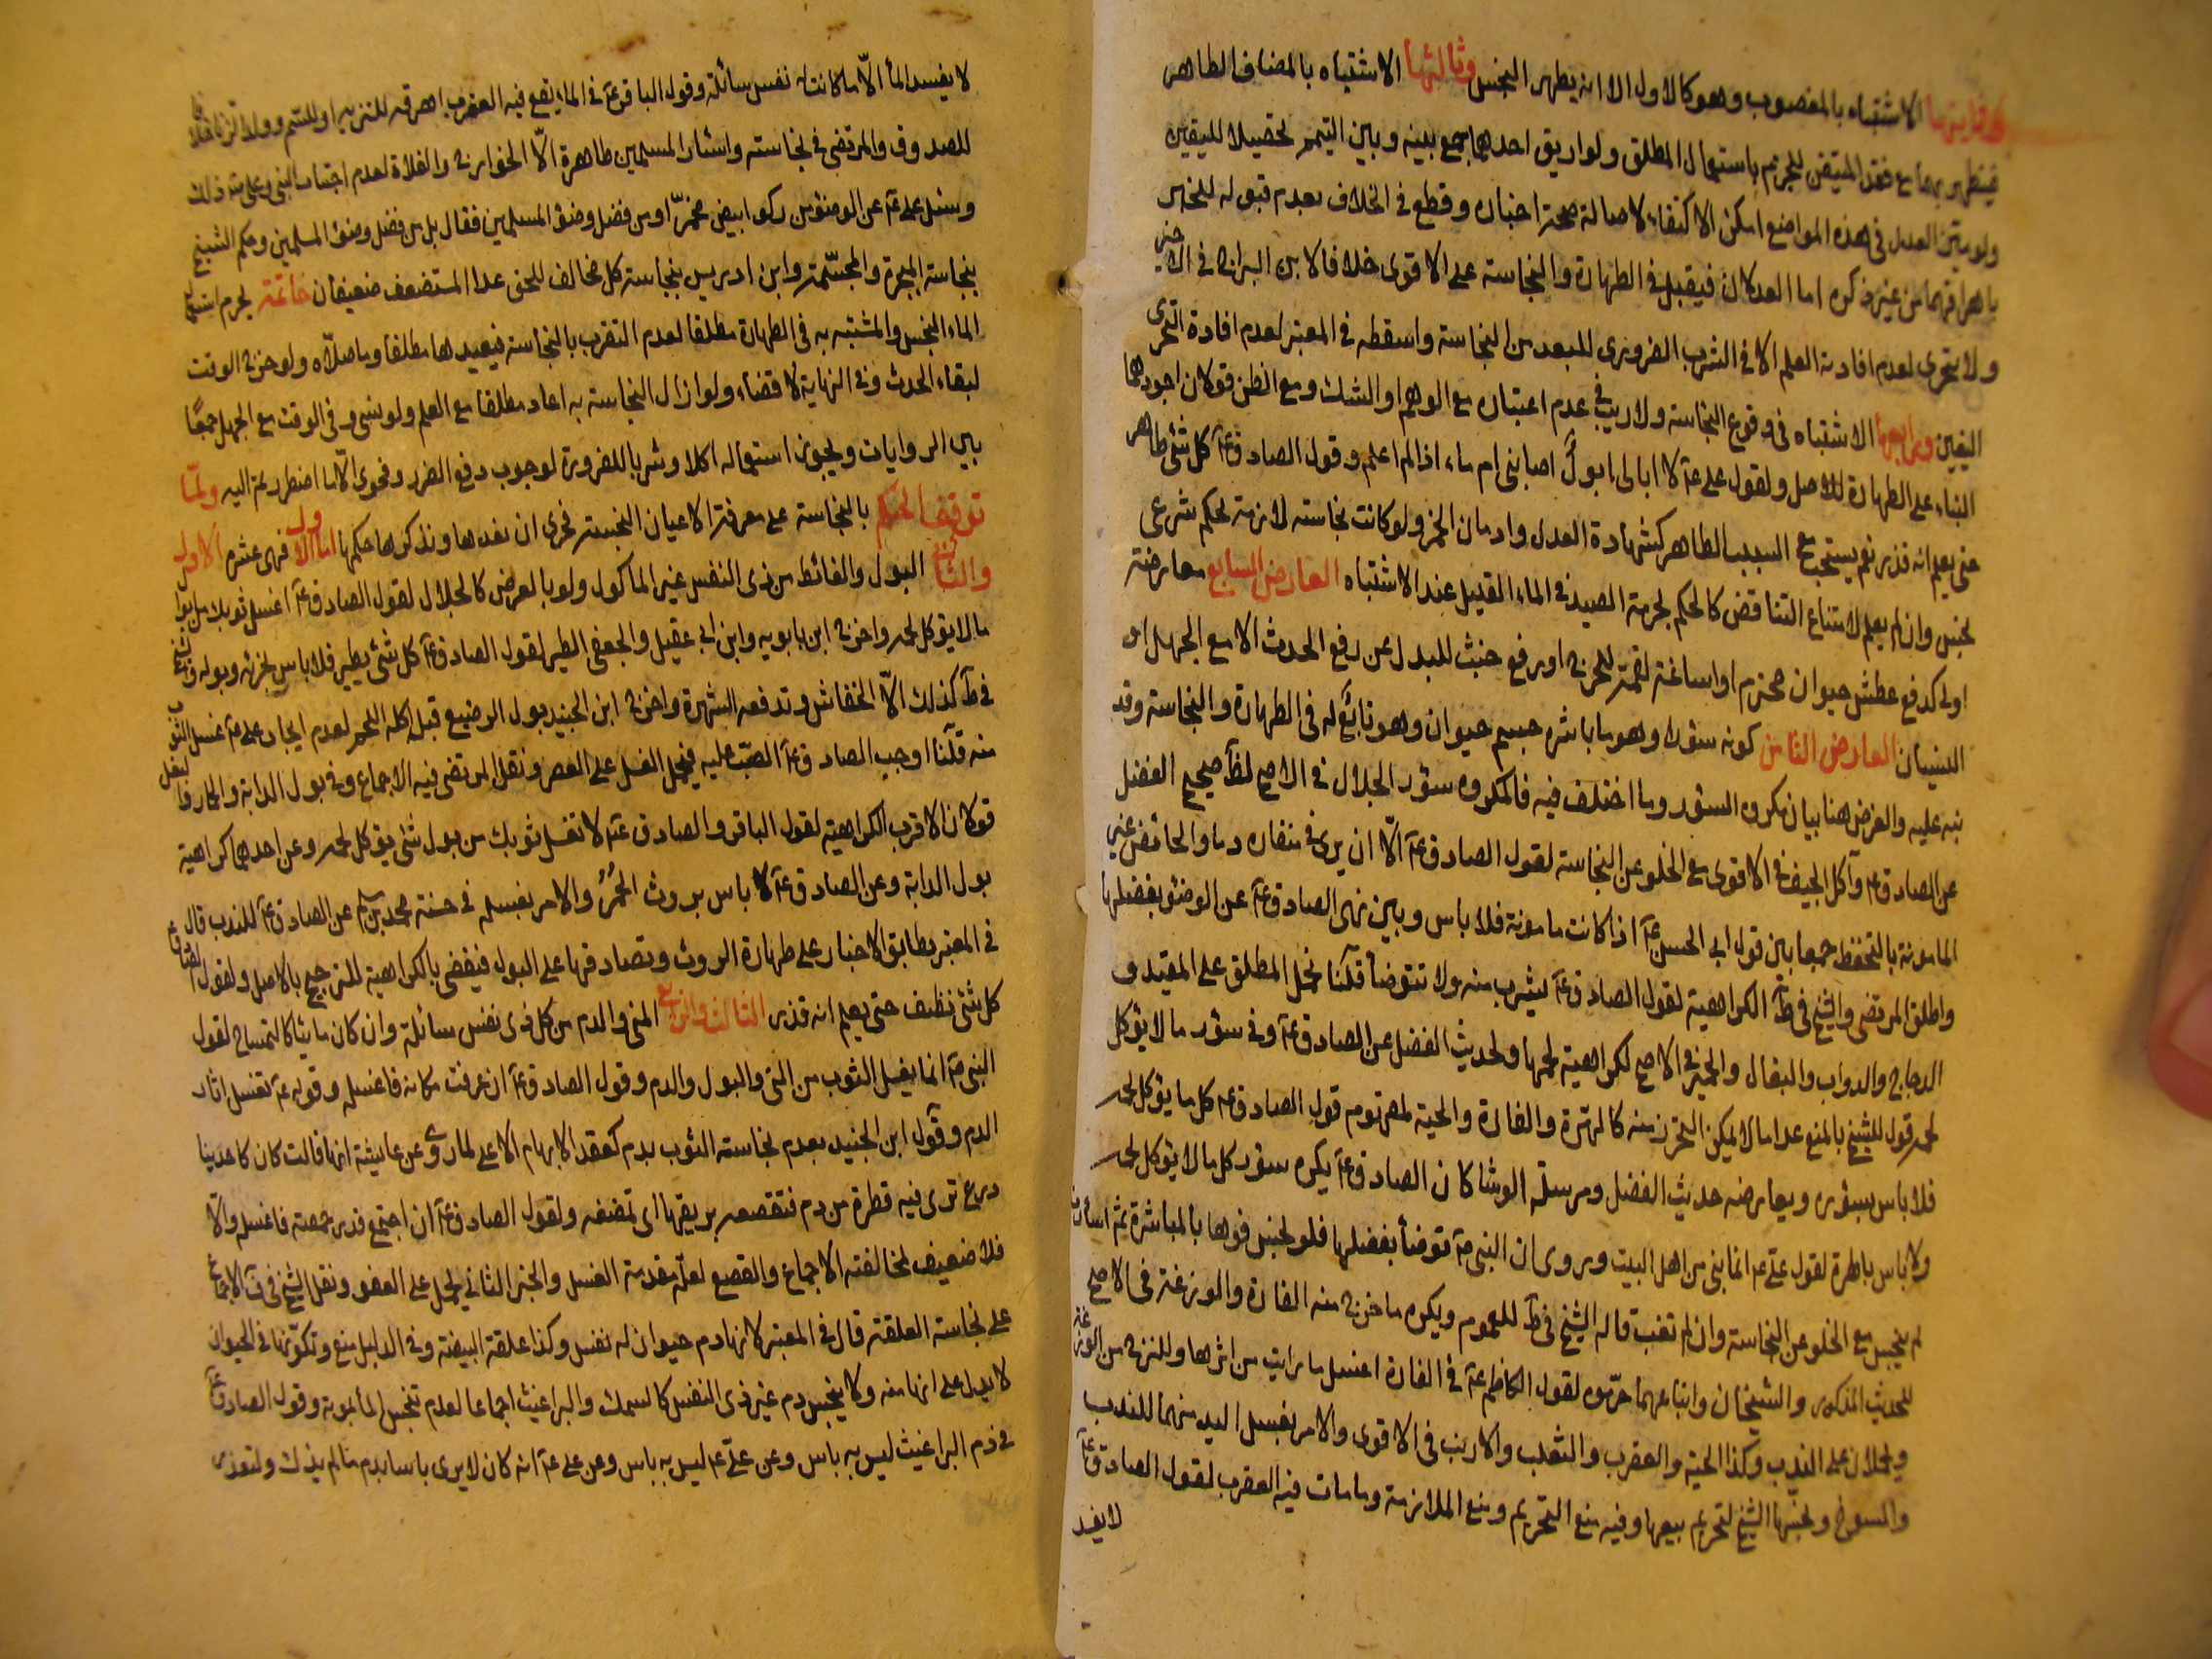 وثانيها الاشتباه بالمغصوب وهو كالاول الا انه يطهر النجس وثالثها الاشتباه بالمضاف الطاهر
فيتطهر بهما مع فقد المتيقن للجزم باستعمال المطلق ولو اريق احدهما جمع بينه وبين التيمم تحصيلا لليقين
العدل في هذه المواضع امكن الاكتفاء لاصالة صحة اخباره وقطع في الخلاف بعدم قبوله للخبر
باهراقهما من غير ذكره اما العدلان فيقبل في الطهارة والنجاسة على الاقوى خلافا لابن البراج في الاخير
ولا يتحرى لعدم افادته العلم الا في الشرب الضروري للبعد من النجاسة واسقطه في المعتبر لعدم افادة التحرى
اليقين ورابعها الاشتباه في وقوع النجاسة ولا ريب في عدم اعتباره مع الوهم او الشك ومع الظن قولان اجودهما
البناء على الطهارة للاصل ولقول علي عم لا ابالي ابول اصابني ام ماء اذا لم اعلم وقول الصادق عم كل شئ طاهر
حتى يعلم انه قذر نعم يستحب مع السبب الظاهر كشهادة العدل وادمان الخمر ولو كانت نجاسته لازمة لحكم شرعى
نجس وان لم يعلم لامتناع التناقض كالحكم بحرمة الصيد في الماء القليل عند الاشتباه العارض السابع معارضته
اولى كدفع عطش حيوان محترم او اساغة لقمة للحرج او رفع خبث للبدل عن رفع الحدث الا مع الجهل او
النسيان العارض الثامن كونه سؤرا وهو ما باشره جسم حيوان وهو تابع له في الطهارة والنجاسة وقد
نبه عليه والغرض هنا بيان مكروه السؤر وما اختلف فيه فالمكروه سؤر الجلال في الاصح لظ صحيح الفضل
عن الصادق عم وآكل الجيف في الاقوى مع الخلو عن النجاسة لقول الصادق عم الا ان يرى في منقاره دما والحائض غير
المامونة بالتحفظ جمعا بين قول ابى الحسن عم اذا كانت مامونة فلا باس وبين نهى الصادق عم عن الوضؤ بفضلها
واطلق المرتضى والشيخ في ط الكراهية لقول الصادق عم يشرب منه ولا تتوضأ قلنا نحمل المطلق على المقيد و
الدجاج والدواب والبغال والحمير في الاصح لكراهية لحمها ولحديث الفضل عن الصادق عم وفي سؤر ما لا يؤكل
لحمه قول للشيخ بالمنع عدا ما لا يمكن التحرز منه كالهرة والفارة والحية لمفهوم قول الصادق عم كل ما يؤكل لحمه
فلا باس بسؤره ويعارضه حديث الفضل ومرسلة الوشا كان الصادق عم يكره سؤر كل ما لا يؤكل لحمه
ولا باس بالهرة لقول علي عم انما هي من اهل البيت وروى ان النبى ص توضأ بفضلها فلو نجس فوها بالمباشرة ثم اسأرت
لم ينجس مع الخلو عن النجاسة وان لم تغب قاله الشيخ في ط للعموم ويكره ما خرج منه الفارة والوزغة في الاصح
للحديث المذكور والشيخان واتباعهما حرموه لقول الكاظم عم في الفارة اغسل ما رايت من اثرها وللنزح من الوزغة
ويحملان على الندب وكذا الحية والعقرب والثعلب والارنب في الاقوى والامر بغسل اليد منهما للندب
والسوخ ونجسها الشيخ لتحريم بيعها وفيه منع التحريم ومنع الملازمة وما مات فيه العقرب لقول الصادق عم
لا يفسد
لا يفسد الماء الا ما كانت له نفس سائلة وقول الباقر عم في الماء يقع فيه العقرب اهرقه للتنزيه او للسم وولد الزنا خلافا
للصدوق والمرتضى في نجاسته واسئار المسلمين طاهرة الا الخوارج والغلاة لعدم اجتناب النبى وعلى ذلك
وسئل علي عم عن الوضؤ من ركو ابيض مخمر او من فضل وضؤ المسلمين فقال بل من فضل وضؤ المسلمين وحكم الشيخ
بنجاسة المجبرة والمجسمة وابن ادريس بنجاسة كل مخالف للحق عدا المستضعف ضعيفان خاتمة يحرم استعمال
الماء النجس والمشتبه به في الطهارة مطلقا لعدم التقرب بالنجاسة فيعيدها مطلقا وما صلاه ولو خرج الوقت
لبقاء الحدث وفي النهاية لا قضاء ولو ازال النجاسة به اعاد مطلقا مع العلم ولو نسى وفي الوقت مع الجهل جمعا
بين الروايات ويجوز استعماله اكلا وشربا للضرورة لوجوب دفع الضرر وفحوى الا ما اضطررتم اليه ولما
توقف الحكم بالنجاسة على معرفة الاعيان النجسة فحرى ان نعدها ونذكر ها حكمها اما الاول فهى عشرة الاول
والثانى البول والغائط من ذى النفس غير الماكول ولو بالعرض كالجلال لقول الصادق عم اغسل ثوبك من ابوال
ما لا يؤكل لحمه واخرج ابن بابويه وابن ابي عقيل والجعفى الطير لقول الصادق عم كل شئ يطير فلا باس بخرئه وبوله والشيخ
في ط كذلك الا الخفاش وتدفعه الشهرة واخرج ابن الجنيد بول الرضيع قبل اكله اللحم لعدم ايجاب علي عم غسل الثوب
منه قلنا اوجب الصادق عم الصب عليه فيحمل الغسل على العصر ونقل المرتضى فيه الاجماع وفي بول الدابة والحمار والبغل
قولان الاقرب الكراهية لقول الباقر والصادق عم لا تغسل ثوبك من بول شئ يؤكل لحمه وعن احدهما كراهية
بول الدابة وعن الصادق عم لا باس بروث الحمر والامر بغسله في حسنة محمد بن مسلم عن الصادق عم للندب قال
في المعتبر بطابق الاخبار على طهارة الروث وتصادفها على البول فيقضى بالكراهية للترجيح بالاصل ولقول الصادق عم
كل شئ نظيف حتى يعلم انه قذر الثالث والرابع المنى والدم من كل ذى نفس سائلة وان كان مائيا كالتمساح لقول
النبى ص انما يغسل الثوب من المنى والبول والدم وقول الصادق عم ان عرفت مكانه فاغسله وقوله عم تغسل اثار
الدم وقول ابن الجنيد بعدم نجاسة الثوب بدم كعقد الابهام الاعلى لما روى عن عايشة انها قالت كان لاحدينا
درع ترى فيه قطرة من دم فتقصعه بريقها اى تمضغه ولقول الصادق عم ان اجتمع قدر حمصة فاغسله والا
فلا ضعيف لمخالفته الاجماع والقصع لعله مقدمة الغسل والخبر الثاني يحمل على العفو ونقل الشيخ في ف الاجماع
على نجاسة العلقة قال في المعتبر لانها دم حيوان له نفس وكذا علقة البيضة وفي الدليل منع وتكونها في الحيوان
لا يدل على انها منه ولا ينجس دم غير ذى النفس كالسمك والبراغيث اجماعا لعدم تنجس الماء بموته وقول الصادق عم
في دم البراغيث ليس به باس وعن علي عم انه كان لا يرى باسا بدم ما لم يذك ولتعذر